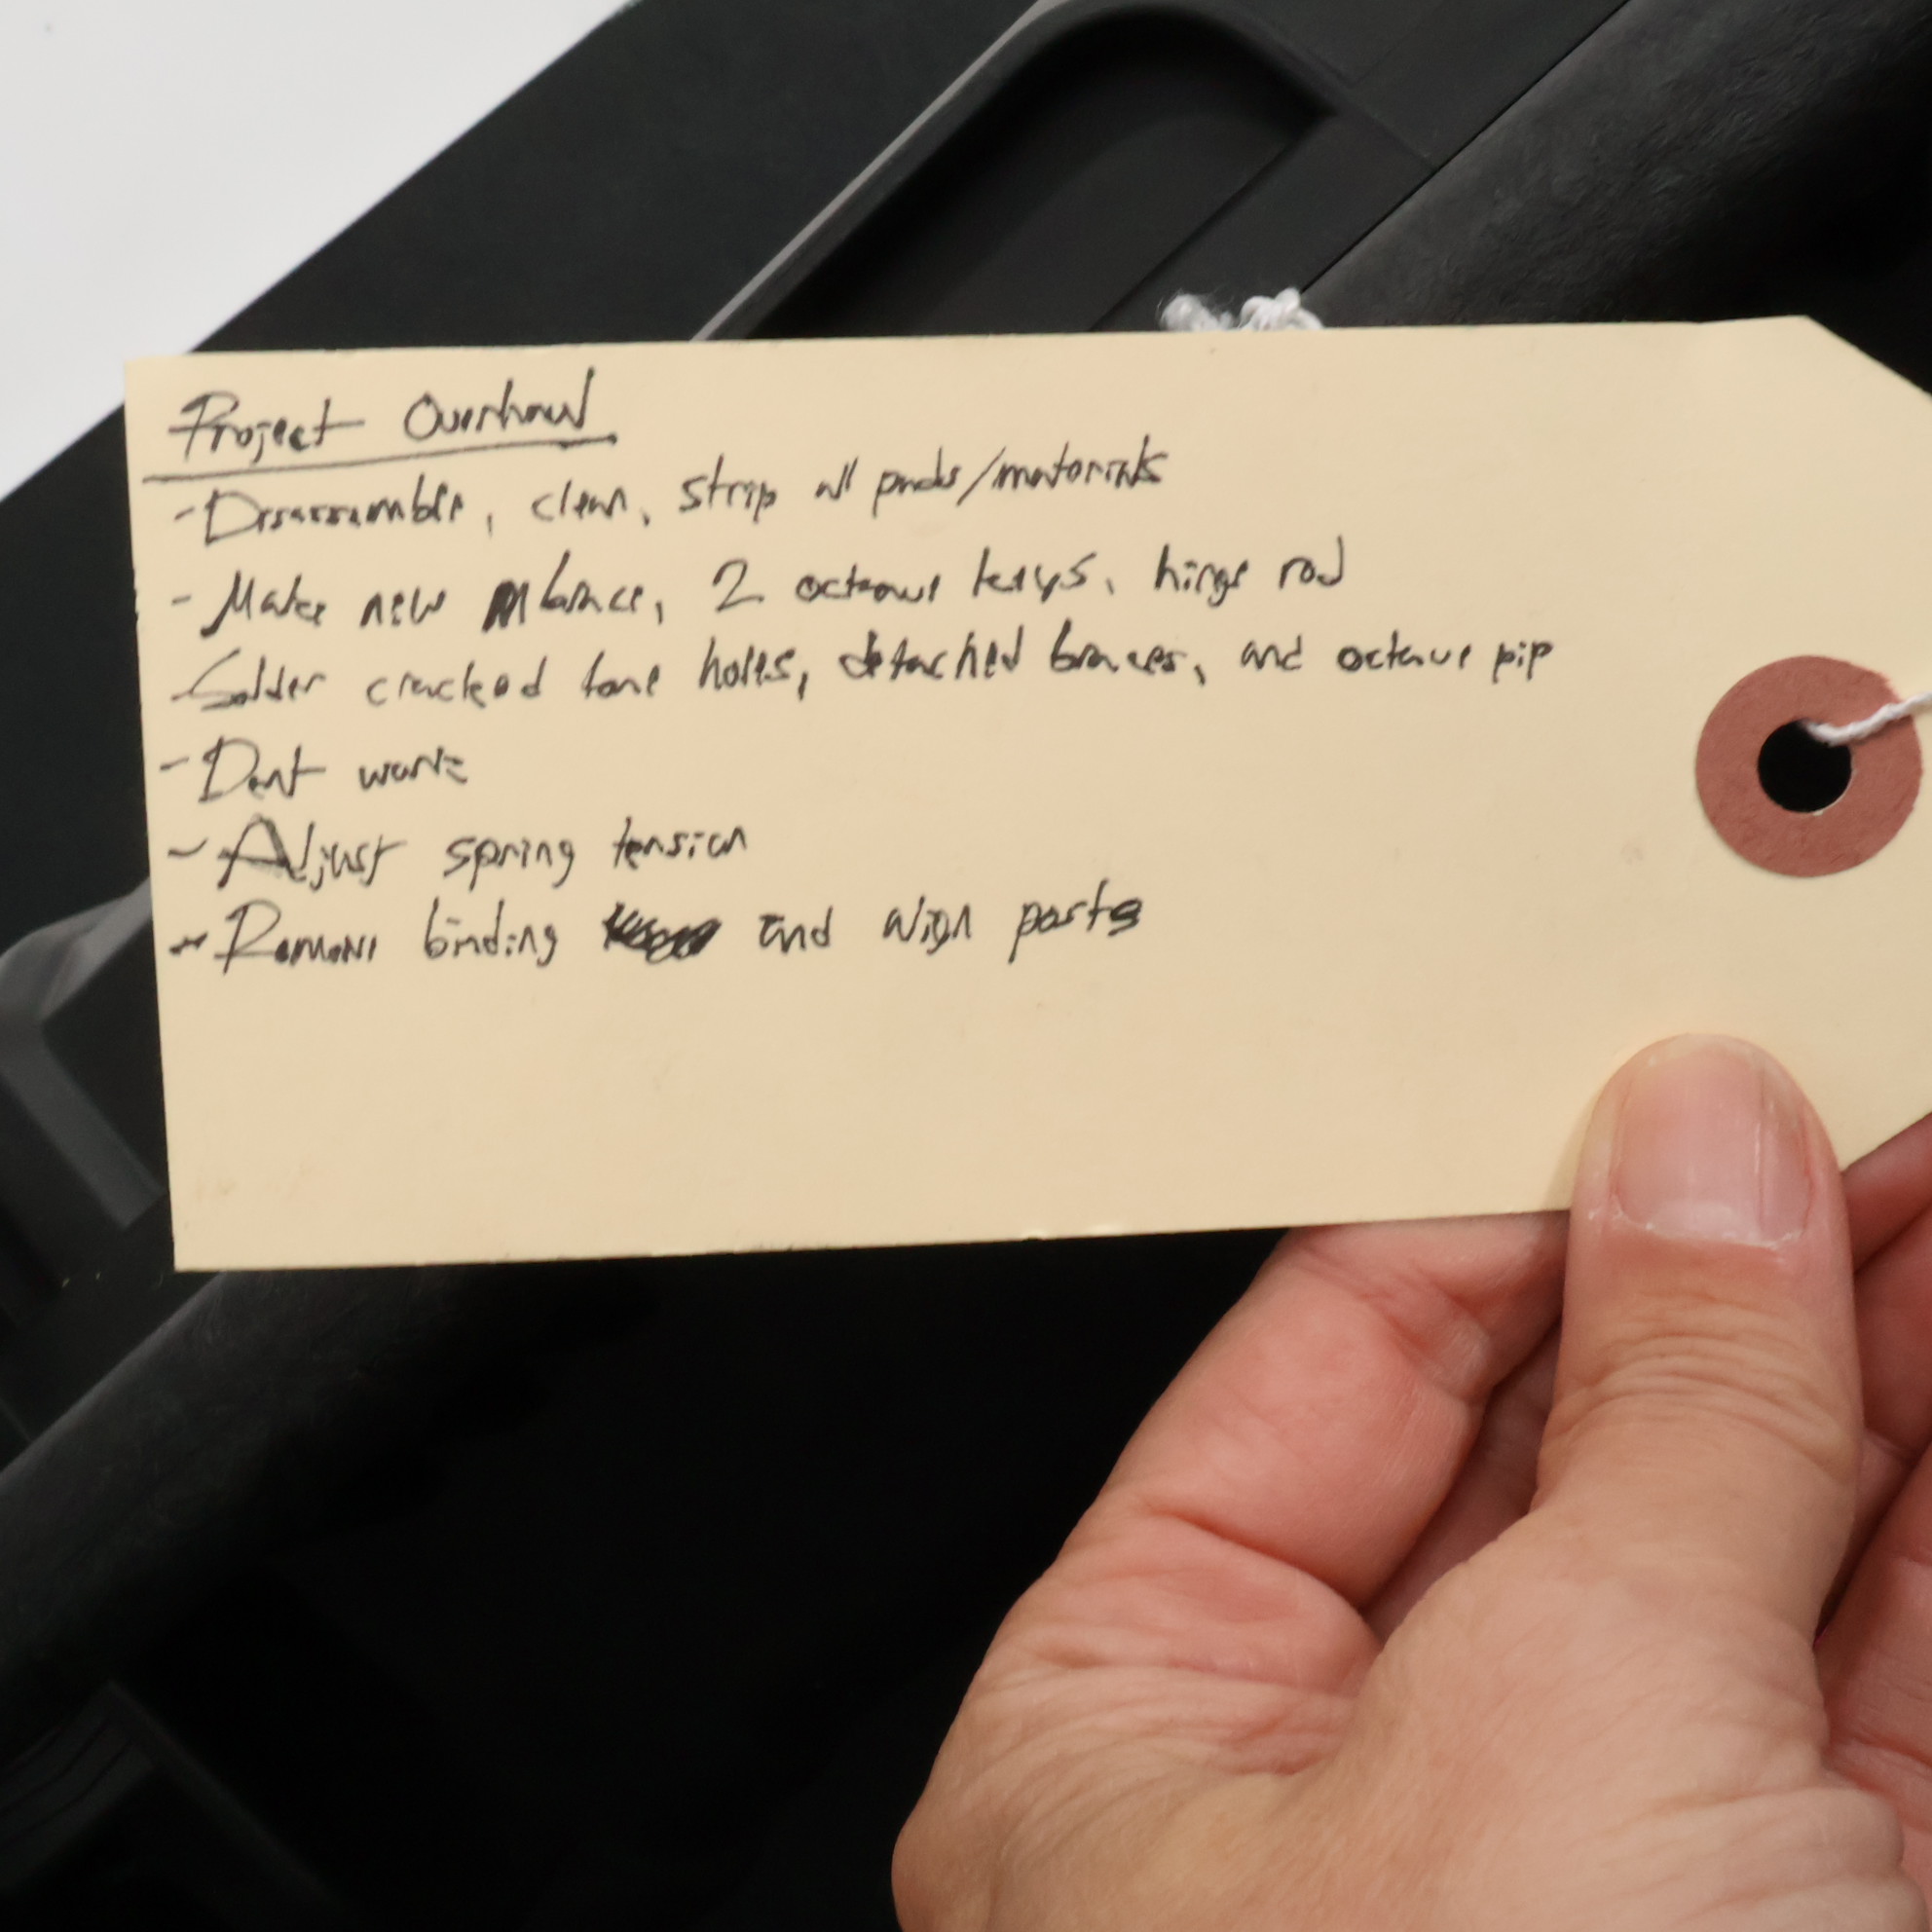 Project Overhaul
- Disassemble, clean, strip all pads/materials
- Make new brace, 2 octave keys, hinge rod
- Solder cracked tone holes, detached braces, and octave pip
- Dent work
- Adjust spring tension
- Remove binding and align parts